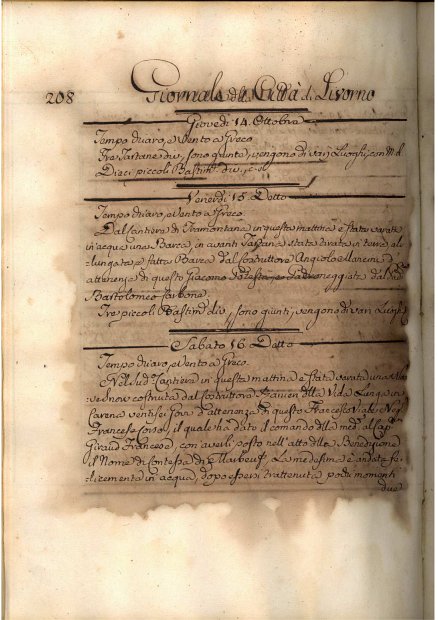 208 Giornale della Città di Livorno
Giovedì 14 Ottobre
Tempo chiaro, e Vento a Greco
Tre Tartane div. sono giunte, vengono di varj Luoghi, con M.
Dieci piccoli Bastim. div. c. s.
Venerdì 15 Detto
Tempo chiaro, e Vento a Greco.
Dal Cantiere di Tramontana in questa mattina è stata varata
in acqua una Barca, in avanti Tartana stata tirata in terra al-
lungata e fatta Barca dal Costruttore Angiolo
attenenza di questo Giacomo Padroneggiata dal
Bartolomeo Carbone.
Tre piccoli Bastim. div. sono giunti, vengono di varj Luoghi
Sabato 16 Detto
Tempo chiaro, e Vento a Greco.
Nel sud. Cantiere in questa mattina è stata varata una
nuova costruita dal Costruttore della Vida Lunga in
Carena ventisei Goe d'attenenza di questo Francesco
Francese Corso, il quale ha dato il comando della med. al Cap.
Giraud Francese, con averli posto nell'atto della Benedizione
il Nome di Contessa di Marbeuf, La medesima è andata fe-
licemente in acqua, dopo essersi trattenuta pochi momenti
due